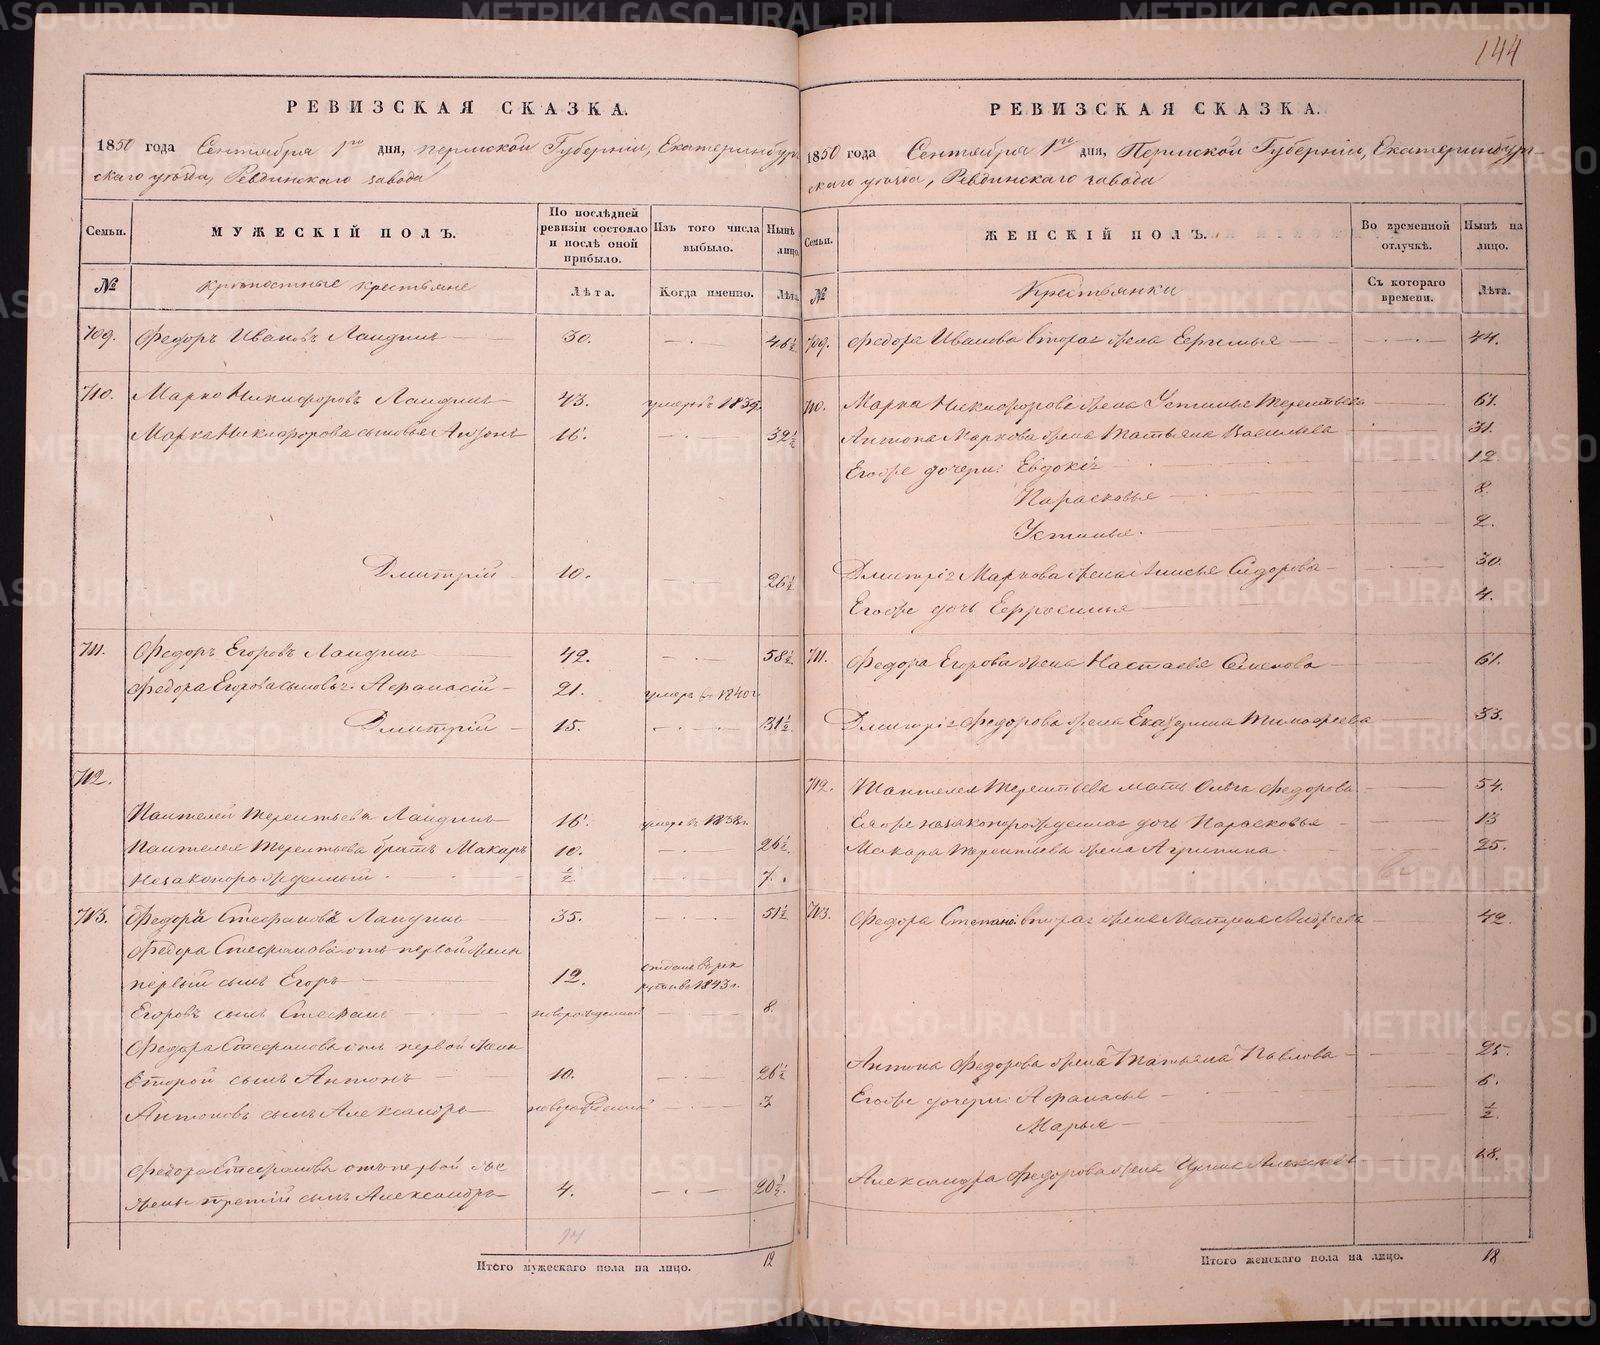 144
РЕВИЗСКАЯ СКАЗКА.
1850 года Сентября 1го дня, Пермской Губерніи, Екатеринбург-
скаго уѣзда, Ревдинскаго завода
Семьи. МУЖЕСКІЙ ПОЛЪ. По послѣдней ревизіи состояло и послѣ оной прибыло. Изъ того числа выбыло. Нынѣ лицо.
№ Крѣпостные крестьяне Лѣта. Когда именно. Лѣта.
709. Федоръ Ивановъ 30. 46½
710. Марко Никифоровъ 43. умеръ въ 1839.
Марка Никифорова сыновья Антонъ 16. 32½
Дмитрій 10. 26½
711. Федоръ Егоровъ 42. 58½
Федора Егорова сыновья: Афанасій 21. умеръ въ 1840г.
Дмитрій 15. 31½
712.
Пантелей Терентьевъ 16. умеръ въ 1838г.
Пантелея Терентьева братъ Макаръ 10. 26½.
Незаконорожденный ½ 7.
713. Федоръ Стефановъ 35. 51½
Федора Стефанова отъ первой жены
первый сынъ Егоръ 12. отданъ въ рек
руты въ 1843г.
Егоровъ сынъ Стефанъ новорожденной 8.
Федора Стефанова отъ первой жены
второй сынъ Антонъ 10. 26½
Антоновъ сынъ Александръ новорожденной 3
Федора Стефанова отъ первой же
жены третій сынъ Александръ 4. 20½.
Итого мужескаго пола на лицо. 12
РЕВИЗСКАЯ СКАЗКА.
1850 года Сентября 1го дня, Пермской Губерніи, Екатеринбур-
скаго уѣзда, Ревдинскаго завода
Семьи. ЖЕНСКІЙ ПОЛЪ. Во временной отлучкѣ. Нынѣ на лицо.
№ Крестьянки Съ котораго времени. Лѣта.
709. Федора Иванова вторая жена 44.
710. Марка Никифорова жена Устинья Терентьева 61.
Антона Маркова жена Татьяна Васильева 31.
Егоже дочери: Евдокія 12
Парасковья 8.
Устинья. 2.
Дмитрія Маркова жена Анисья Сидорова 30.
Егоже дочь Ефросинья 4.
711. Федора Егорова жена Настасья 61.
Дмитрія Федорова жена Екатерина Тимофеева 33.
712. Пантелея Терентьева мать Ольга Федорова 54.
Еяже незаконорожденная дочь Парасковья 13
Макара Терентьева жена Агрипина 25.
713. Федора Степанов: вторая жена Матрена Андреева 42.
Антона Федорова жена Татьяна Павлова 25.
Егоже дочери: Афанасья 6.
Марья ½
Александра Федорова жена Ирина Алексеева 18.
Итого женскаго пола на лицо. 18
METRIKI.GASO-URAL.RU